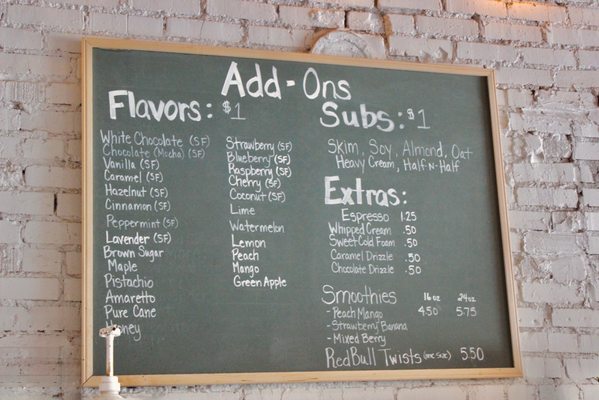 Add-Ons
Flavors: $1
White Chocolate (SF)
Chocolate (Mocha) (SF)
Vanilla (SF)
Caramel (SF)
Hazelnut (SF)
Cinnamon (SF)
Peppermint (SF)
Lavender (SF)
Brown Sugar
Maple
Pistachio
Amaretto
Pure Cane
Honey
Strawberry (SF)
Blueberry (SF)
Raspberry (SF)
Cherry (SF)
Coconut (SF)
Lime
Watermelon
Lemon
Peach
Mango
Green Apple
Subs: $1
Skim, Soy, Almond, Oat
Heavy Cream, Half-N-Half
Extras:
Espresso 1.25
Whipped Cream .50
Sweet Cold Foam .50
Caramel Drizzle .50
Chocolate Drizzle .50
Smoothies 16oz 24oz
- Peach Mango 4.50 5.75
- Strawberry Banana
- Mixed Berry
RedBull Twists (one size) 5.50